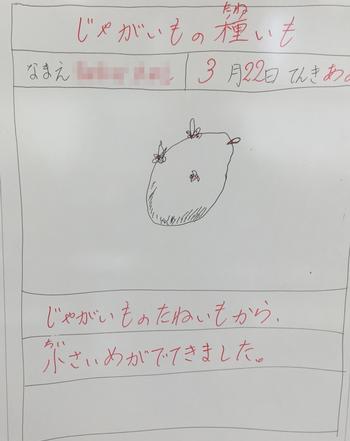 たね
じゃがいもの種いも
なまえ 3月22日 てんき
じゃがいものたねいもから、
ちい
小さいめがでてきました。